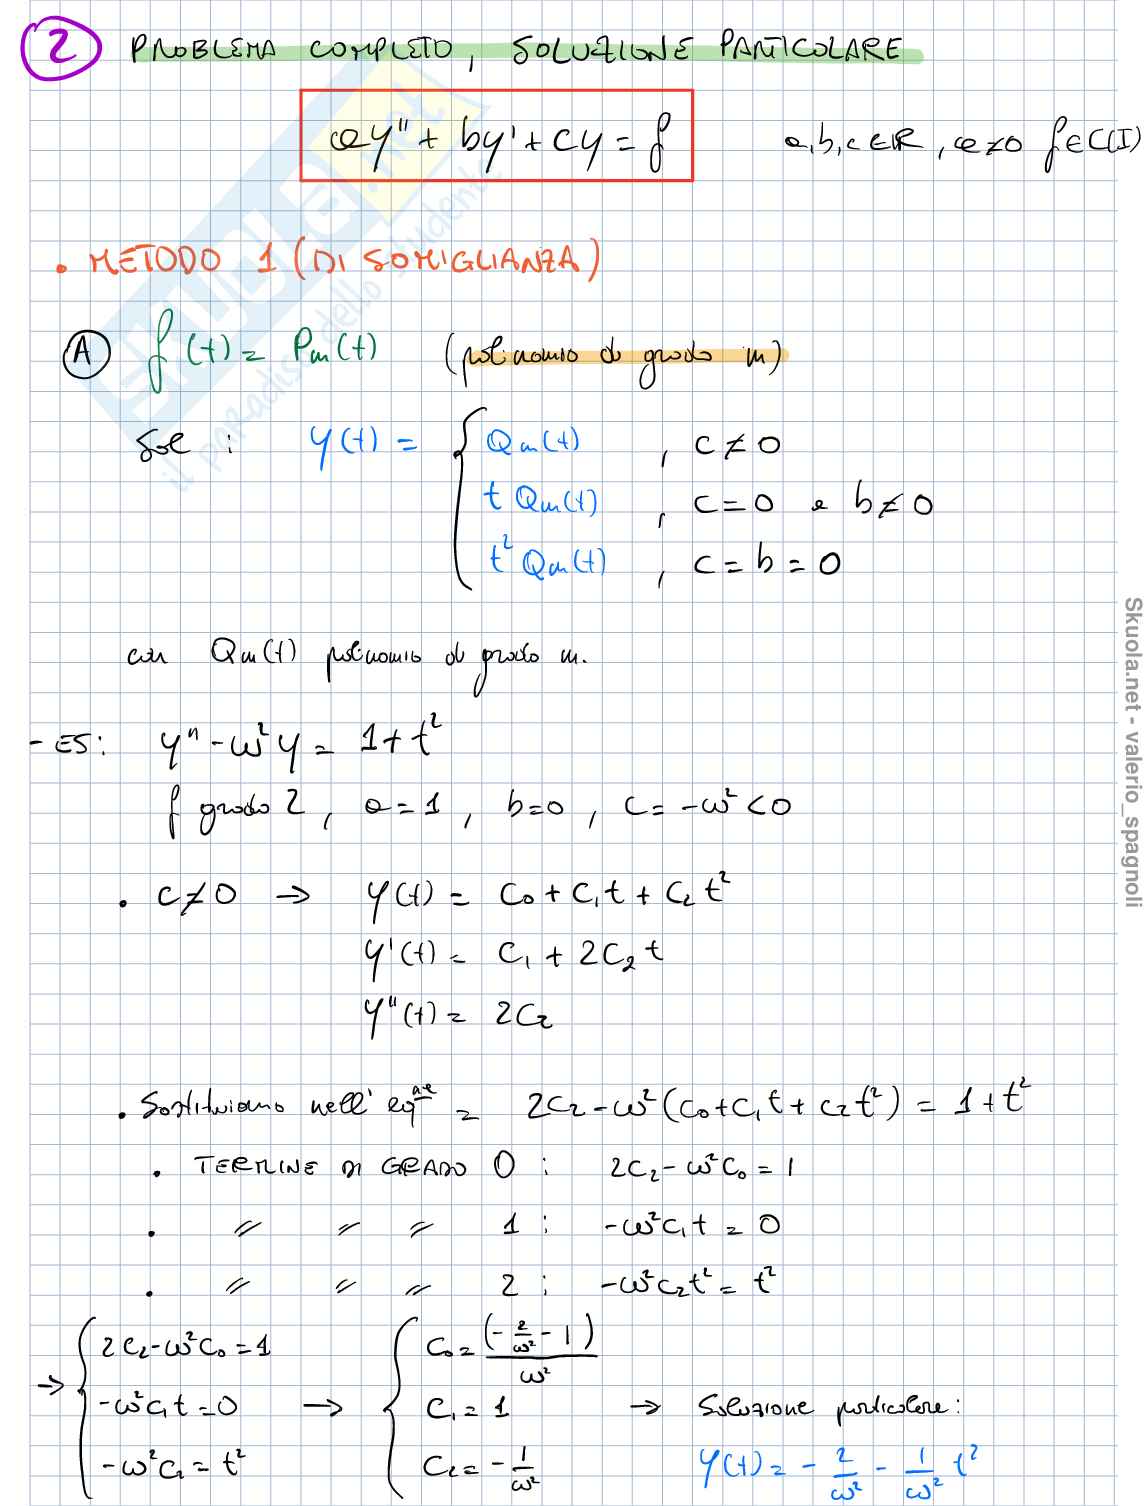 2 PROBLEMA COMPLETO, SOLUZIONE PARTICOLARE
ay'' + by' + cy = f   a,b,c ∈ ℝ, a≠0 f∈C(I)
• METODO 1 (DI SOMIGLIANZA)
A f(t) = Pm(t) (polinomio di grado m)
Sol : y(t) = { Qm(t) , c ≠ 0
t Qm(t) , c = 0 e b ≠ 0
t² Qm(t) , c = b = 0
con Qm(t) polinomio di grado m.
- ES: y'' - ω²y = 1 + t²
f grado 2, a = 1, b = 0, c = -ω² < 0
• c ≠ 0 → y(t) = c₀ + c₁t + c₂t²
y'(t) = c₁ + 2c₂t
y''(t) = 2c₂
• Sostituiamo nell'eqᵃᵉ = 2c₂ - ω²(c₀ + c₁t + c₂t²) = 1 + t²
• TERMINE DI GRADO 0 : 2c₂ - ω²c₀ = 1
•〃 〃 〃 1 : -ω²c₁t = 0
• 〃 〃 〃 2 : -ω²c₂t² = t²
→ { 2c₂ - ω²c₀ = 1   { c₀ = (-2/ω² - 1)/ω²
-ω²c₁t = 0 → c₁ = 1 → Soluzione particolare:
-ω²c₂ = t²   c₂ = -1/ω²   y(t) = -2/ω² - 1/ω² t²
Skuola.net - valerio_spagnoli
SKUOLA.net
il paradiso dello studente